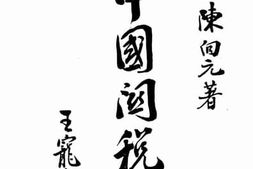 陳向元著
中國關税
王寵